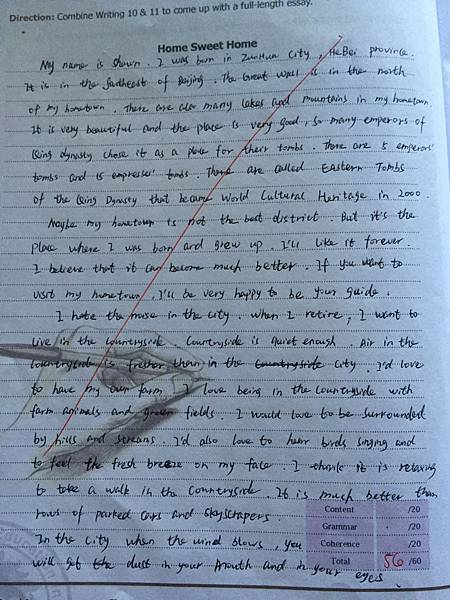 Direction: Combine Writing 10 & 11 to come up with a full-length essay.
Home Sweet Home
My name is shown. I was born in ZunHua City, HeBei province.
It is in the farthest of Beijing. The Great Wall is in the north
of my hometown. There are also many lakes and mountains in my hometown.
It is very beautiful and the place is very good, so many emperors of
Qing dynasty chose it as a place for their tombs. There are 5 emperors'
tombs and 15 empresses' tombs. These are called Eastern Tombs
of the Qing Dynasty that became World Cultural Heritage in 2000.
Maybe my hometown is not the best district. But it's the
place where I was born and grew up. I'll like it forever.
I believe that it can become much better. If you want to
visit my hometown, I'll be very happy to be your guide.
I hate the noise in the city. When I retire, I want to
live in the countryside. Countryside is quiet enough. Air in the
countryside is fresher than in the countryside city. I'd love
to have my own farm. I love being in the countryside with
farm animals and green fields. I would love to be surrounded
by hills and streams. I'd also love to hear birds singing and
to feel the fresh breeze on my face. I think it is relaxing
to take a walk in the countryside. It is much better than
rows of parked cars and skyscrapers.
In the city when the wind blows, you
will get the dust in your mouth and in your eyes.
Content /20
Grammar /20
Coherence /20
Total 56 /60